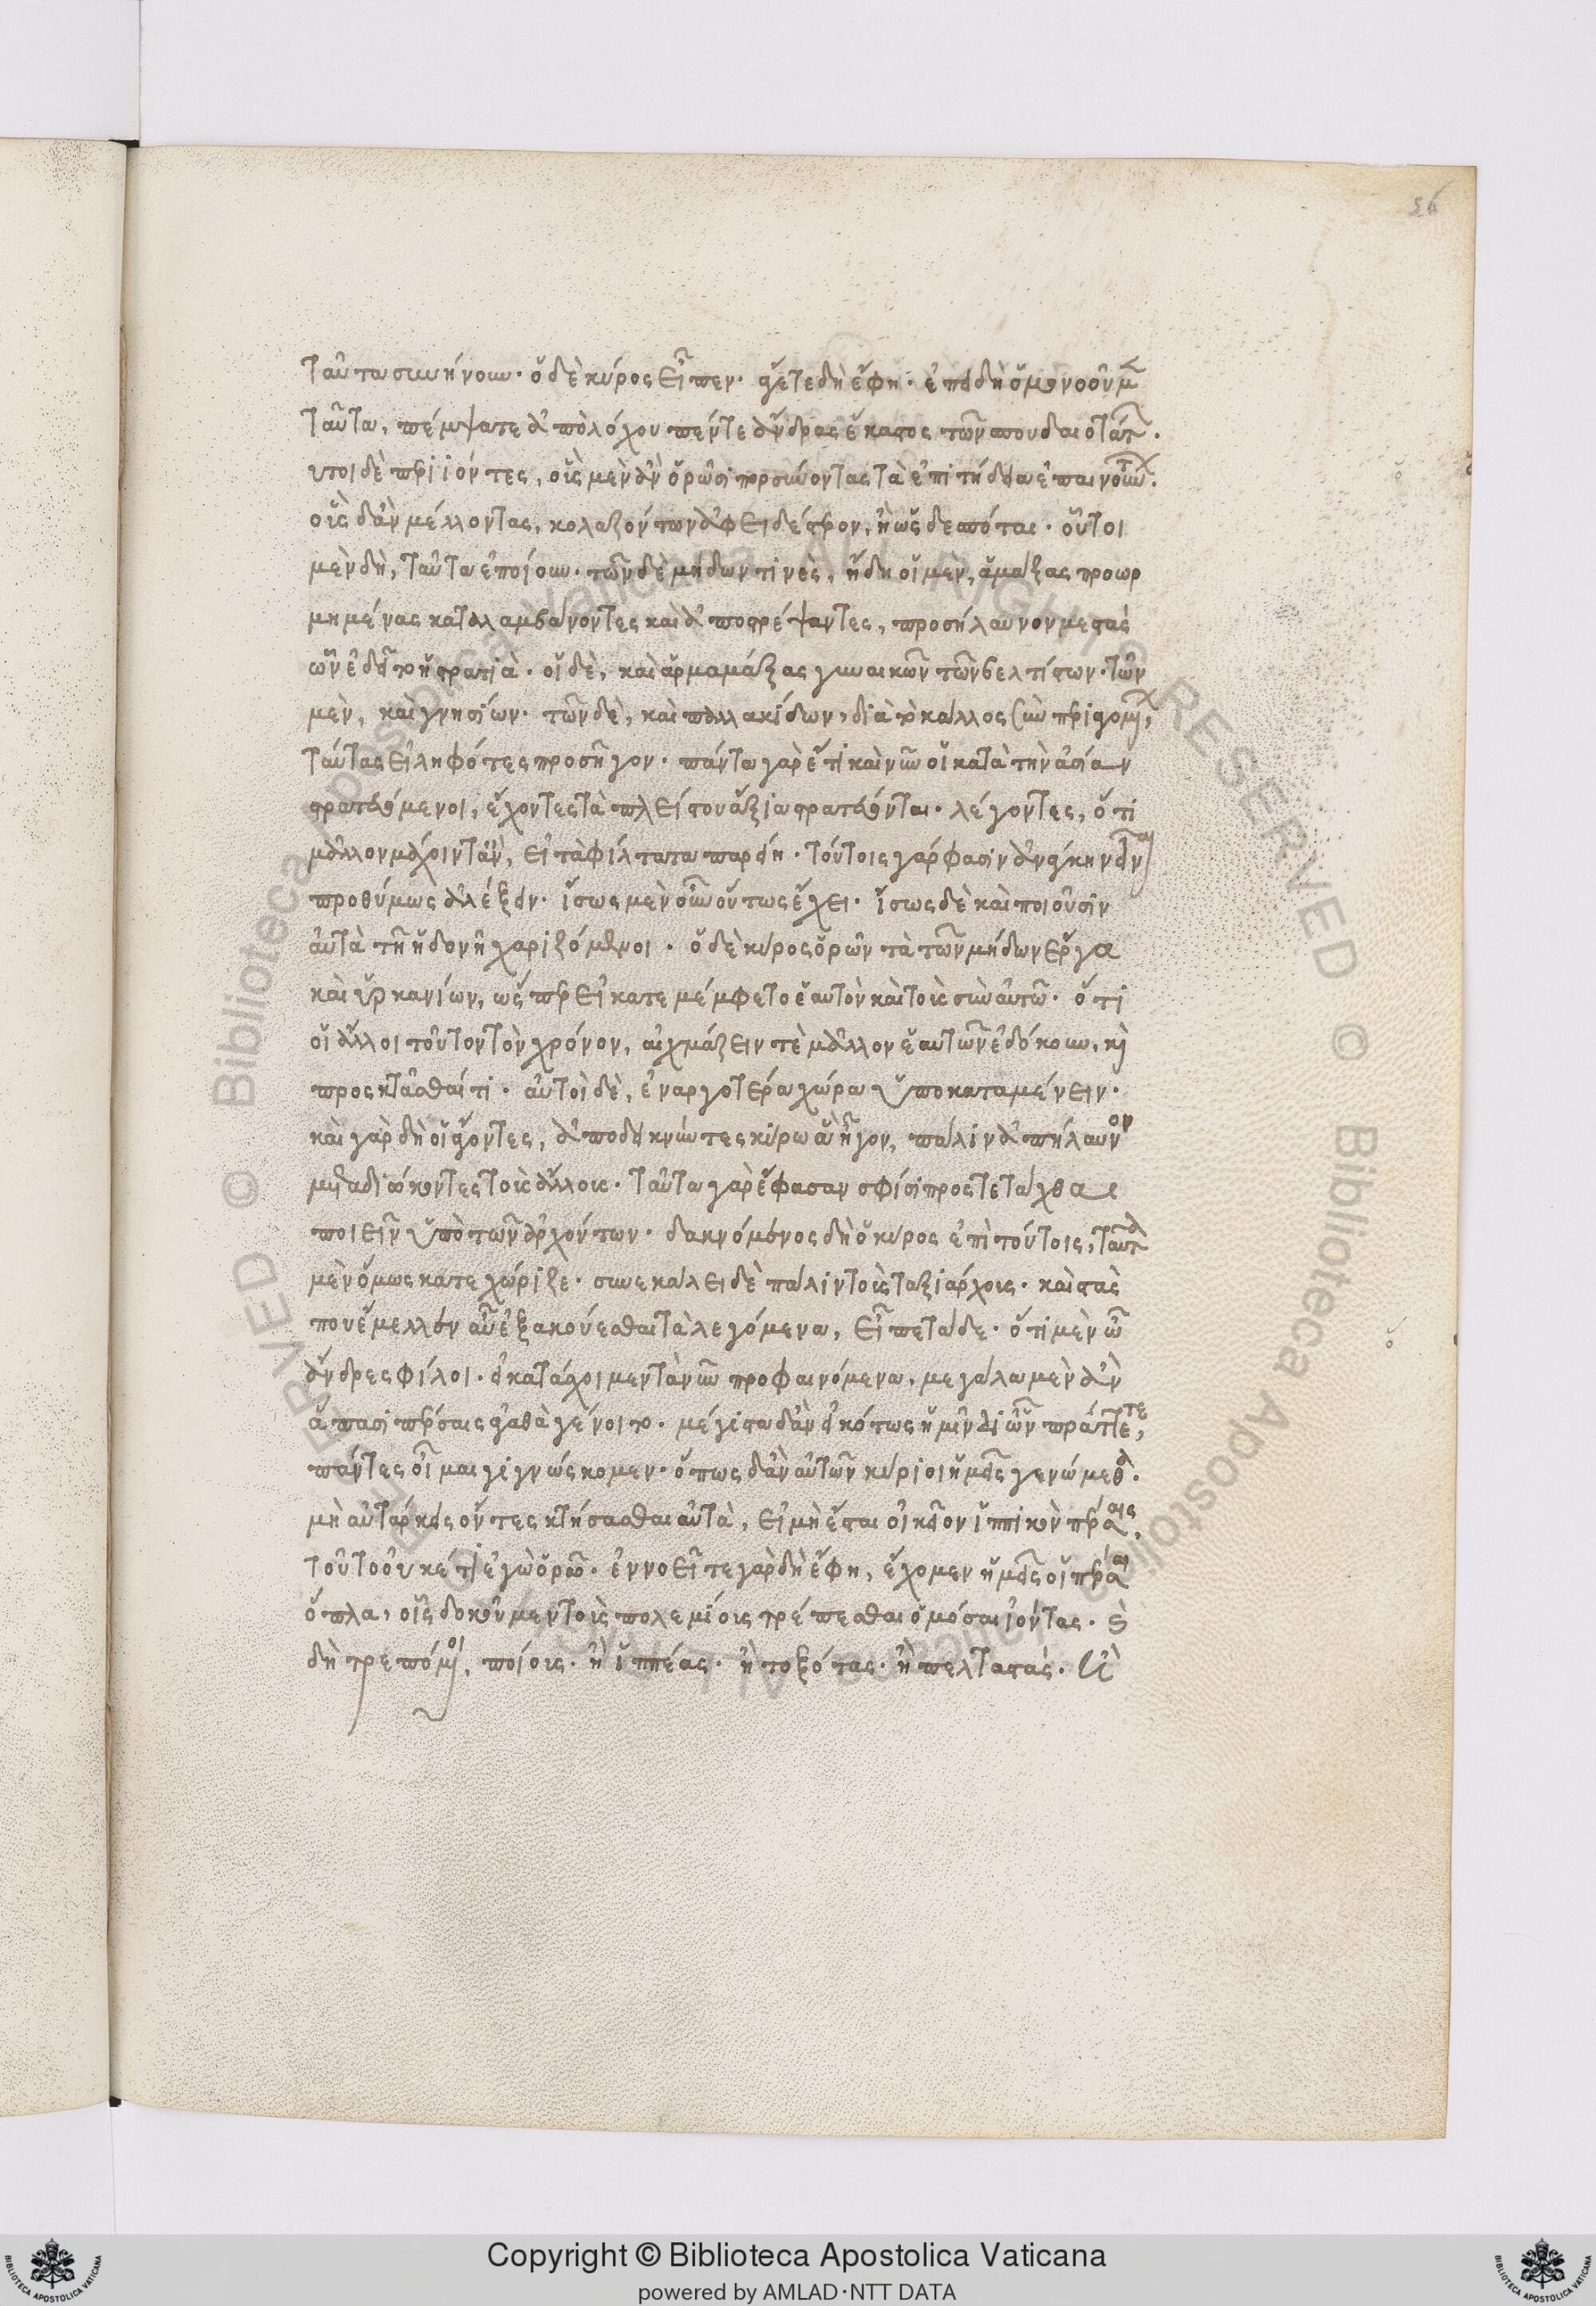 56
ταῦτα συνήνουν. ὁ δὲ κύρος εἶπεν. ἄγετε δὴ ἔφη. ἐπειδὴ ὁμονοοῦμεν
ταῦτα, πέμψατε ἀπὸ λόχου πέντε ἄνδρας ἕκαστος τῶν σπουδαιοτάτων.
οὗτοι δὲ περιιόντες, οὓς μὲν ἂν ὁρῶσι πορσύνοντας τὰ ἐπιτήδεια ἐπαινούντων.
οὓς δ' ἂν μέλλοντας, κολαζόντων ἀφειδέστερον, ἢ ὡς δεσπόται. οὗτοι
μὲν δὴ, ταῦτα ἐποίουν. τῶν δὲ μήδων τινὲς, ἤδη οἱ μὲν, ἁμάξας προωρ
μημένας καταλαμβάνοντες καὶ ἀποστρέψαντες, προσήλαυνον μεστὰς
ὧν ἐδεῖτο ἡ στρατιὰ. οἱ δὲ, καὶ ἁρμαμάξας γυναικῶν τῶν βελτίστων. τῶν
μὲν, καὶ γνησίων. τῶν δὲ, καὶ παλλακίδων, διὰ τὸ κάλλος συμπεριαγομένων,
ταύτας εἰληφότες προσῆγον. πάντα γὰρ ἔτι καὶ νῦν οἱ κατὰ τὴν ἀσίαν
στρατευόμενοι, ἔχοντες τὰ πλείστου ἄξια στρατεύονται. λέγοντες, ὅτι
μᾶλλον μάχοιντ' ἂν, εἰ τὰ φίλτατα παρείη. τούτοις γάρ φασιν ἀνάγκην εἶναι
προθύμως ἀλέξειν. ἴσως μὲν οὖν οὕτως ἔχει. ἴσως δὲ καὶ ποιοῦσιν
αὐτὰ τῆ ἡδονῆ χαριζόμενοι. ὁ δὲ κύρος ὁρῶν τὰ τῶν μήδων ἔργα
καὶ ὑρκανίων, ὥσπερ εἰ κατεμέμφετο ἑαυτὸν καὶ τοὺς σὺν αὐτῶ. ὅτι
οἱ ἄλλοι τοῦτον τὸν χρόνον, αἰχμάζειν τὲ μᾶλλον ἑαυτῶν ἐδόκουν, καὶ
προςκτᾶσθαί τι. αὐτοὶ δὲ, ἐν ἀργοτέρα χώρα ὑποκαταμένειν.
καὶ γὰρ δὴ οἱ ἄγοντες, ἀποδεικνύντες κύρω ἃ ἦγον, πάλιν ἀπήλαυνον
μεταδιώκοντες τοὺς ἄλλους. ταῦτα γὰρ ἔφασαν σφίσι προςτετάχθαι
ποιεῖν ὑπὸ τῶν ἀρχόντων. δακνόμενος δὴ ὁ κύρος ἐπὶ τούτοις, ταῦτα
μὲν ὅμως κατεχώριζε. συνεκάλει δὲ πάλιν τοὺς ταξιάρχους. καὶ στὰς
που ἔμελλον αὖ ἐξακούεσθαι τὰ λεγόμενα, εἶπε τάδε. ὅτι μὲν ὦ
ἄνδρες φίλοι. εἰ κατάσχοιμεν τὰ νῦν προφαινόμενα, μεγάλα μὲν ἂν
ἅπασι πέρσαις ἀγαθὰ γένοιτο. μέγιστα δ' ἂν εἰκότως ἡμῖν δι' ὧν πράττεται,
πάντες οἶμαι γιγνώσκομεν. ὅπως δ' ἂν αὐτῶν κύριοι ἡμεῖς γενώμεθα.
μὴ αὐτάρκεις ὄντες κτήσασθαι αὐτὰ, εἰ μὴ ἔσται οἰκεῖον ἱππικὸν πέρσαις,
τοῦτο οὐκέτι ἐγὼ ὁρῶ. ἐννοεῖτε γὰρ δὴ ἔφη, ἔχομεν ἡμεῖς οἱ πέρσαι
ὅπλα, οἷς δοκοῦμεν τοὺς πολεμίους τρέπεσθαι ὁμόσαι ἰόντας. καὶ
δὴ τρεπόμενοι, ποίους. ἢ ἱππέας. ἢ τοξότας. ἢ πελταστὰς. ἄ
Copyright © Biblioteca Apostolica Vaticana
powered by AMLAD·NTT DATA